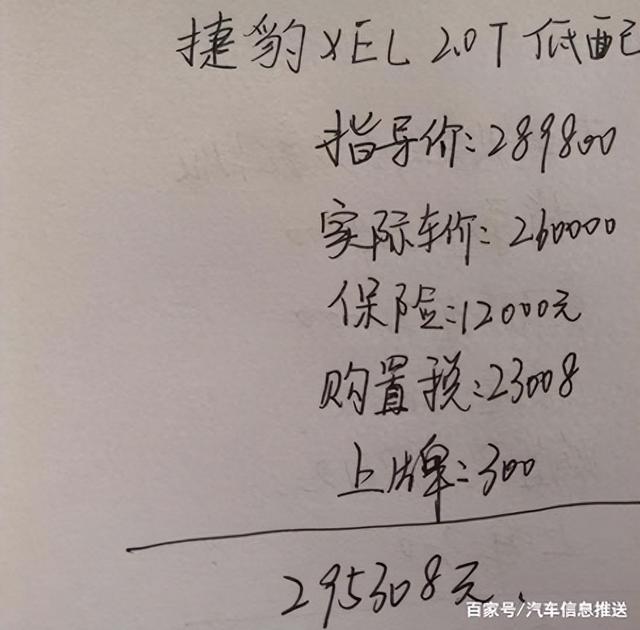 捷豹XEL 2.0T低配
指导价:289800
实际车价:260000
保险:12000元
购置税:23008
上牌:300
295308元.
百家号/汽车信息推送